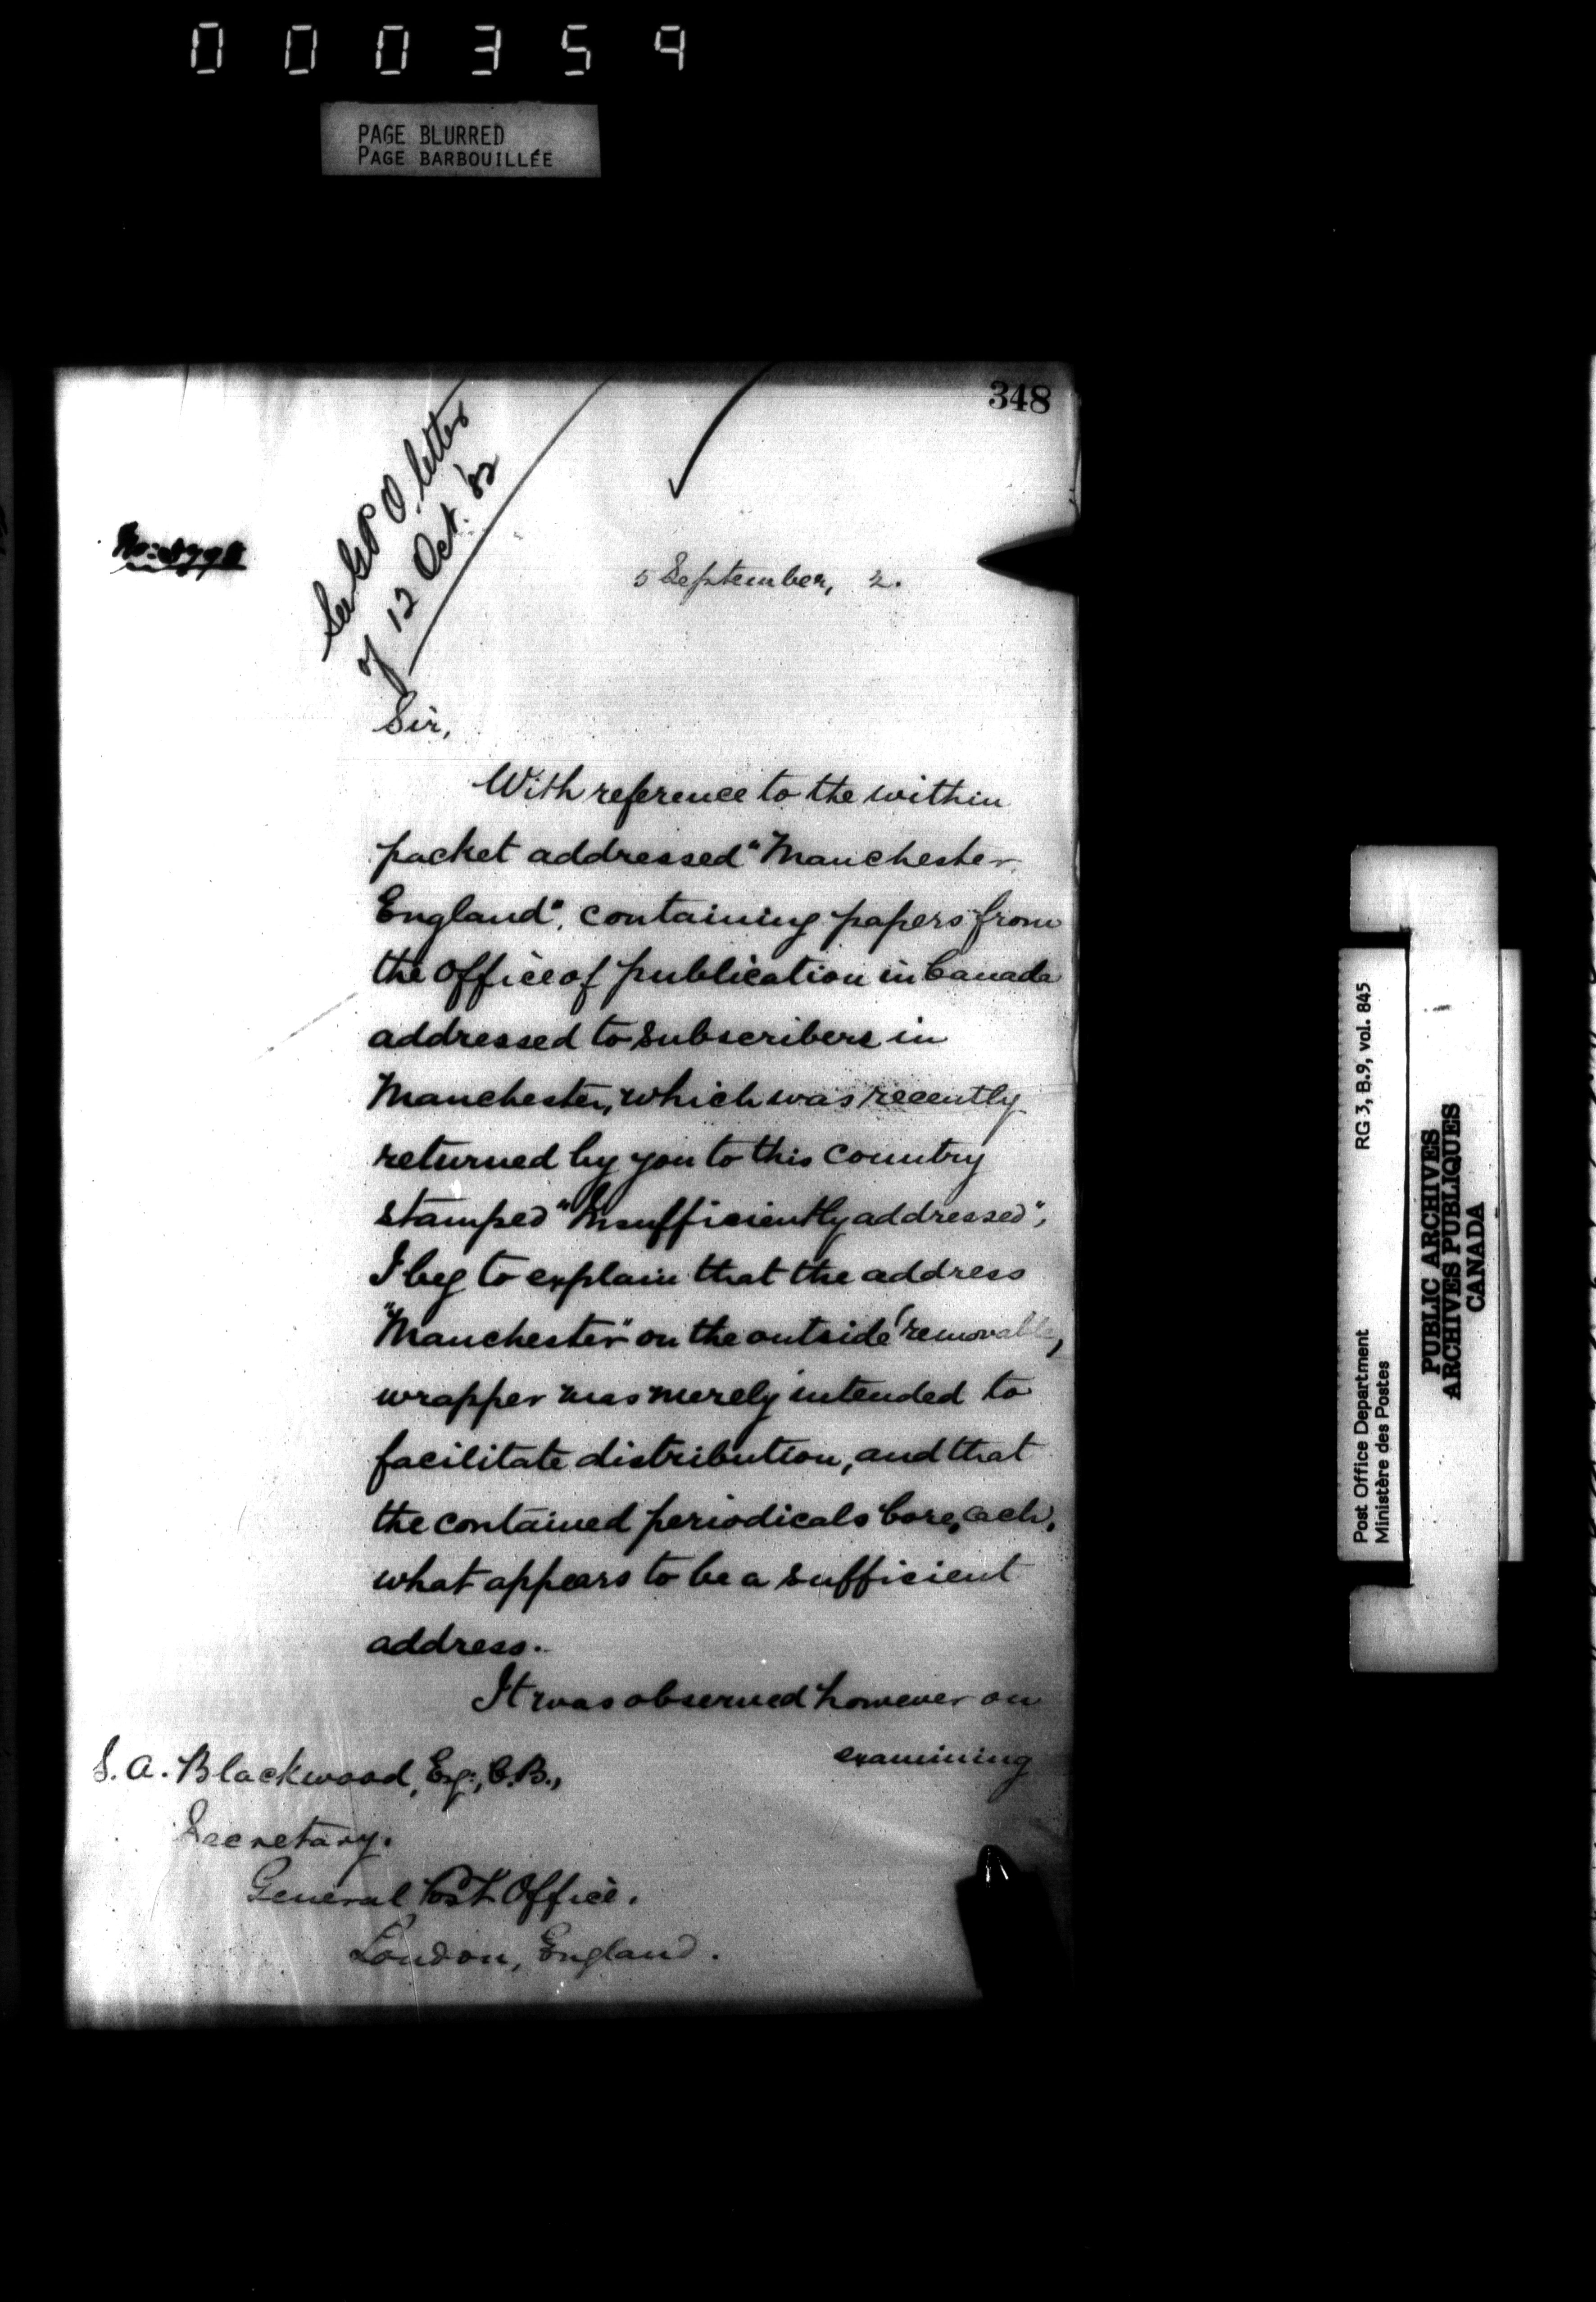 000359
PAGE BLURRED
PAGE BARBOUILLÉE
348
See G P O. letter
of 12 Oct. '82
No:
5 September, 2.
Sir,
With reference to the within
packet addressed "Manchester
England", containing papers from
the office of publication in Canada
addressed to subscribers in
Manchester, which was recently
returned by you to this country
stamped "Insufficiently addressed",
I beg to explain that the address
"Manchester" on the outside (removable)
wrapper was merely intended to
facilitate distribution, and that
the contained periodicals bore, each,
what appears to be a sufficient
address.
It was observed however on
examining
S. A. Blackwood, Esq:, C.B.,
Secretary.
General Post Office.
London, England.
Post Office Department RG 3, B.9, vol. 845
Ministère des Postes
PUBLIC ARCHIVES
ARCHIVES PUBLIQUES
CANADA